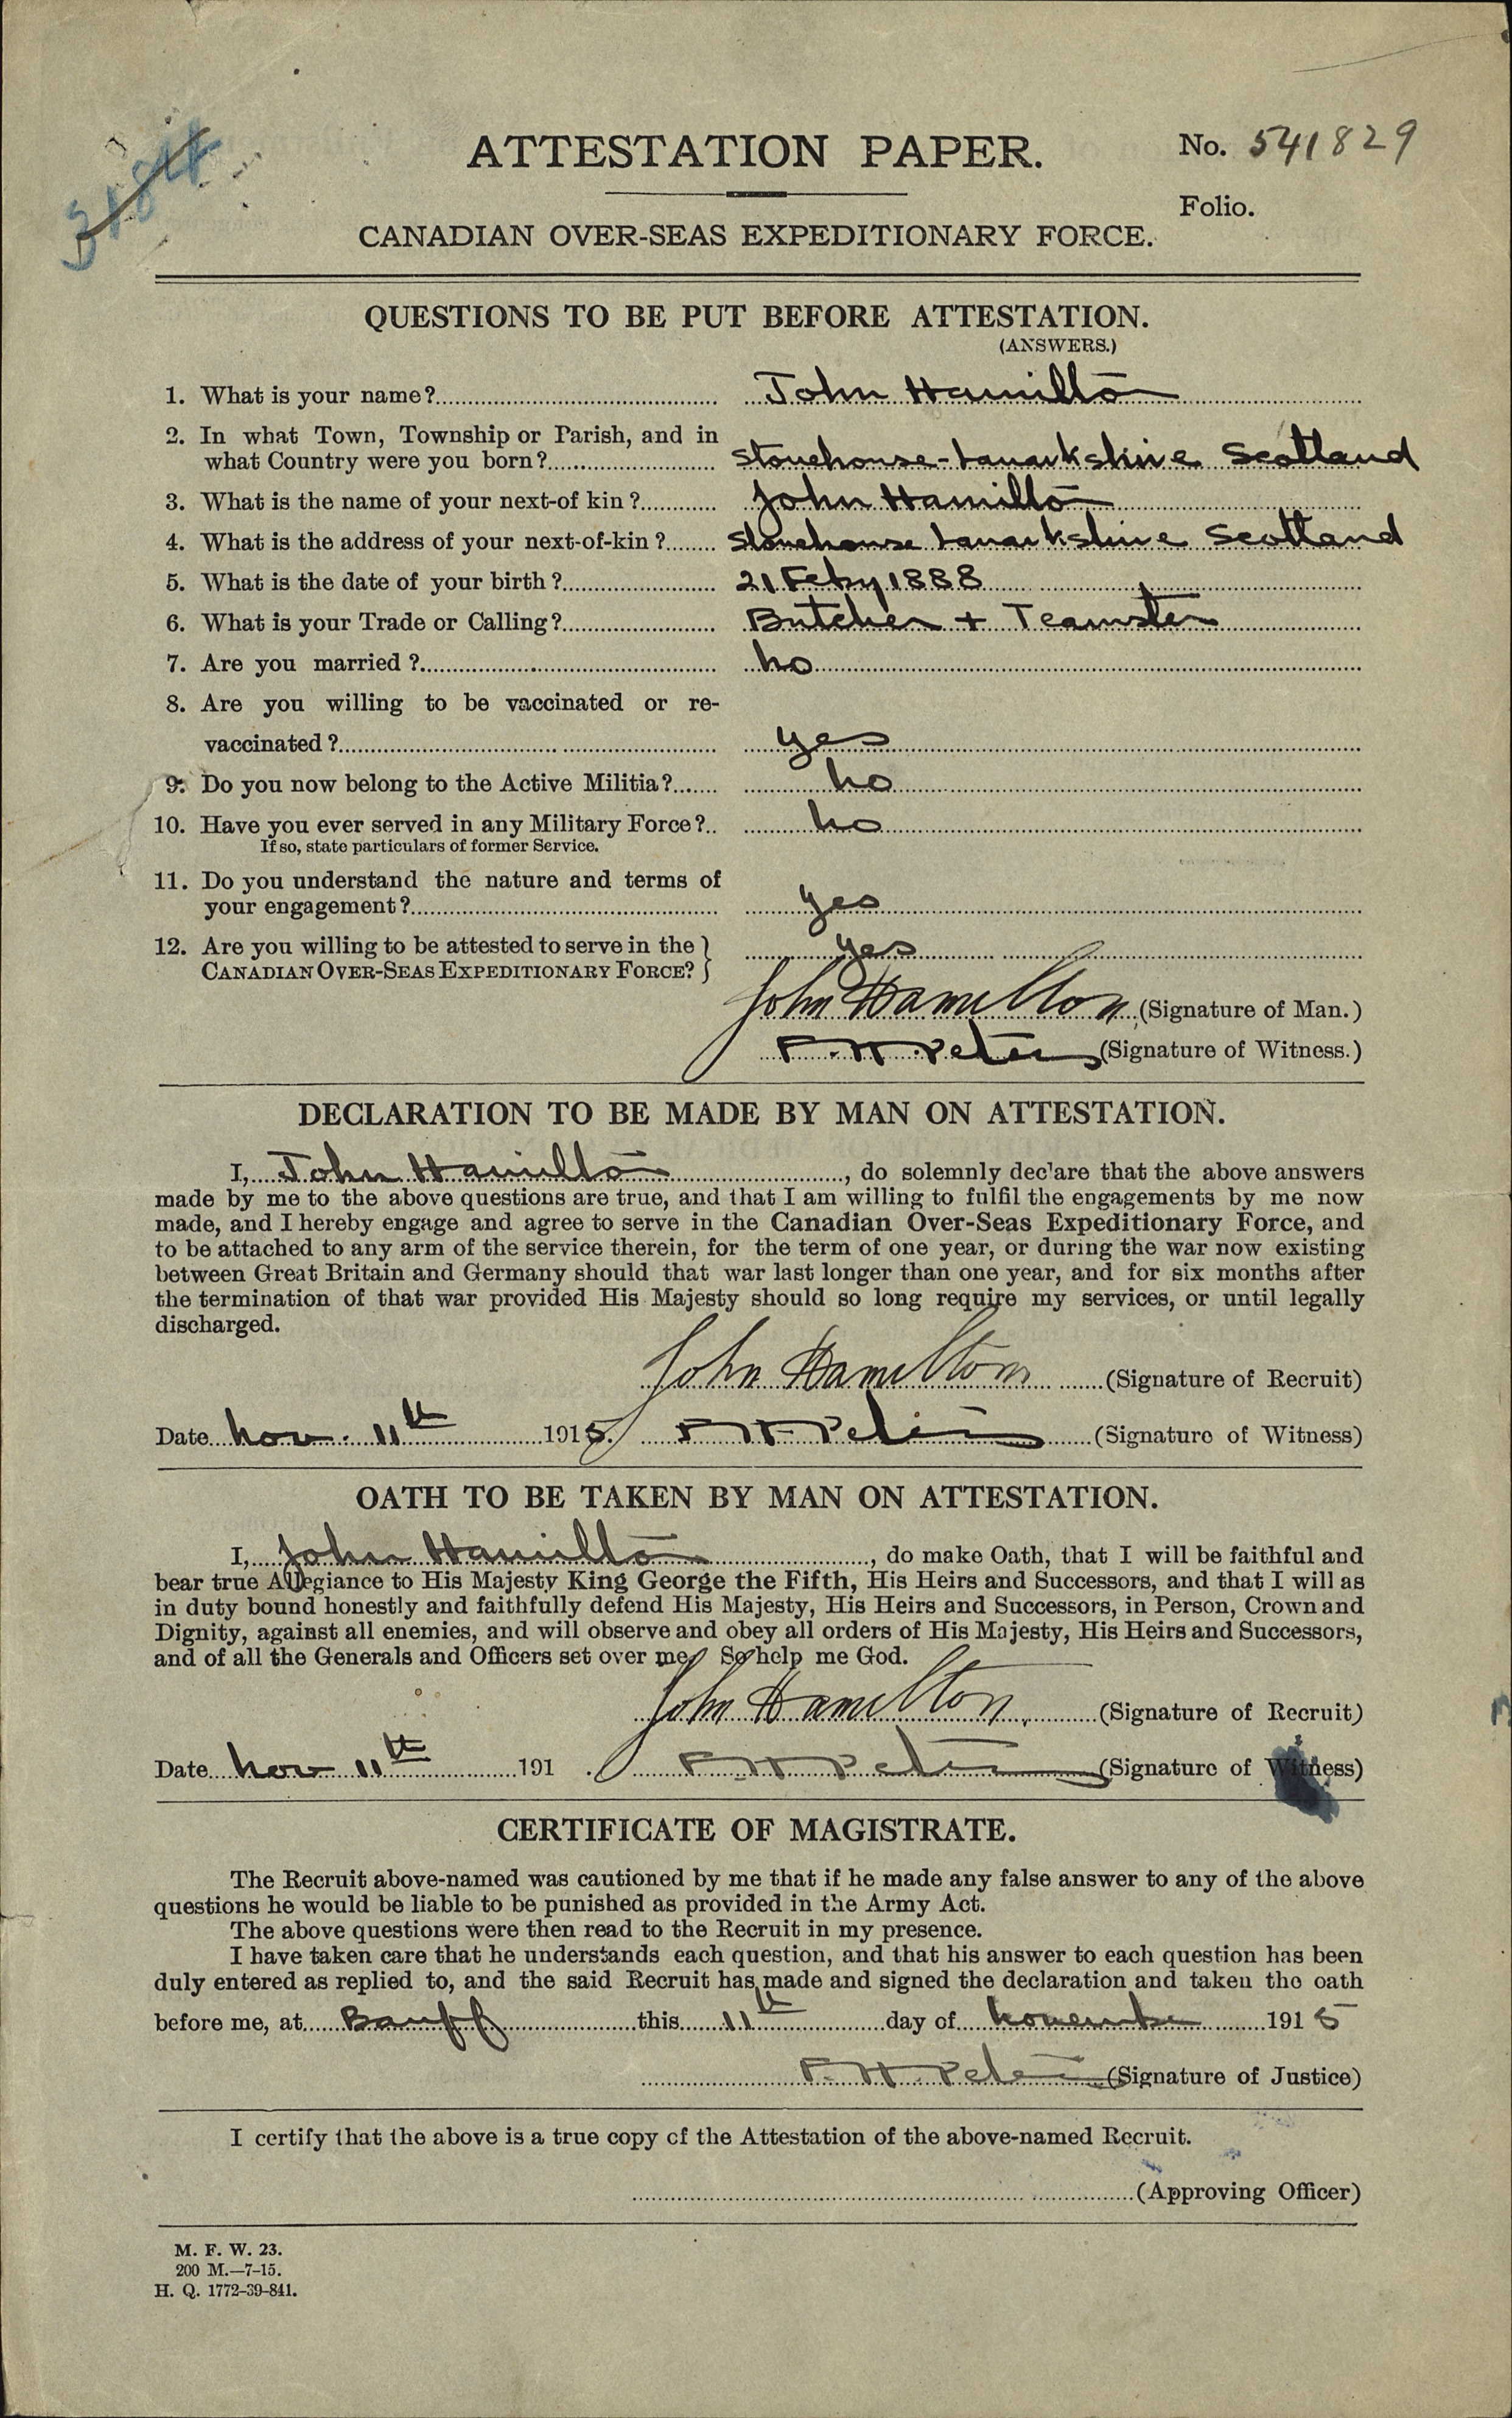 3184
ATTESTATION PAPER.
No. 541829
Folio.
CANADIAN OVER-SEAS EXPEDITIONARY FORCE.
QUESTIONS TO BE PUT BEFORE ATTESTATION.
(ANSWERS.)
1. What is your name? John Hamilton
2. In what Town, Township or Parish, and in
what Country were you born? Stonehouse-Lanarkshire Scotland
3. What is the name of your next-of kin? John Hamilton
4. What is the address of your next-of-kin? Stonehouse Lanarkshire Scotland
5. What is the date of your birth? 21 Feby 1888
6. What is your Trade or Calling? Butcher + Teamster
7. Are you married? no
8. Are you willing to be vaccinated or re-
vaccinated? yes
9. Do you now belong to the Active Militia? no
10. Have you ever served in any Military Force? no
If so, state particulars of former Service.
11. Do you understand the nature and terms of
your engagement? yes
12. Are you willing to be attested to serve in the
CANADIAN OVER-SEAS EXPEDITIONARY FORCE? yes
John Hamilton (Signature of Man.)
F. H. Peters (Signature of Witness.)
DECLARATION TO BE MADE BY MAN ON ATTESTATION.
I, John Hamilton, do solemnly declare that the above answers
made by me to the above questions are true, and that I am willing to fulfil the engagements by me now
made, and I hereby engage and agree to serve in the Canadian Over-Seas Expeditionary Force, and
to be attached to any arm of the service therein, for the term of one year, or during the war now existing
between Great Britain and Germany should that war last longer than one year, and for six months after
the termination of that war provided His Majesty should so long require my services, or until legally
discharged.
John Hamilton (Signature of Recruit)
Date Nov. 11th 1915. F H Peters (Signature of Witness)
OATH TO BE TAKEN BY MAN ON ATTESTATION.
I, John Hamilton, do make Oath, that I will be faithful and
bear true Allegiance to His Majesty King George the Fifth, His Heirs and Successors, and that I will as
in duty bound honestly and faithfully defend His Majesty, His Heirs and Successors, in Person, Crown and
Dignity, against all enemies, and will observe and obey all orders of His Majesty, His Heirs and Successors,
and of all the Generals and Officers set over me. So help me God.
John Hamilton (Signature of Recruit)
Date Nov 11th 191 . F. H Peters (Signature of Witness)
CERTIFICATE OF MAGISTRATE.
The Recruit above-named was cautioned by me that if he made any false answer to any of the above
questions he would be liable to be punished as provided in the Army Act.
The above questions were then read to the Recruit in my presence.
I have taken care that he understands each question, and that his answer to each question has been
duly entered as replied to, and the said Recruit has made and signed the declaration and taken the oath
before me, at Banff this 11th day of November 1915
F. H. Peters (Signature of Justice)
I certify that the above is a true copy of the Attestation of the above-named Recruit.
(Approving Officer)
M. F. W. 23.
200 M.—7-15.
H. Q. 1772-39-841.